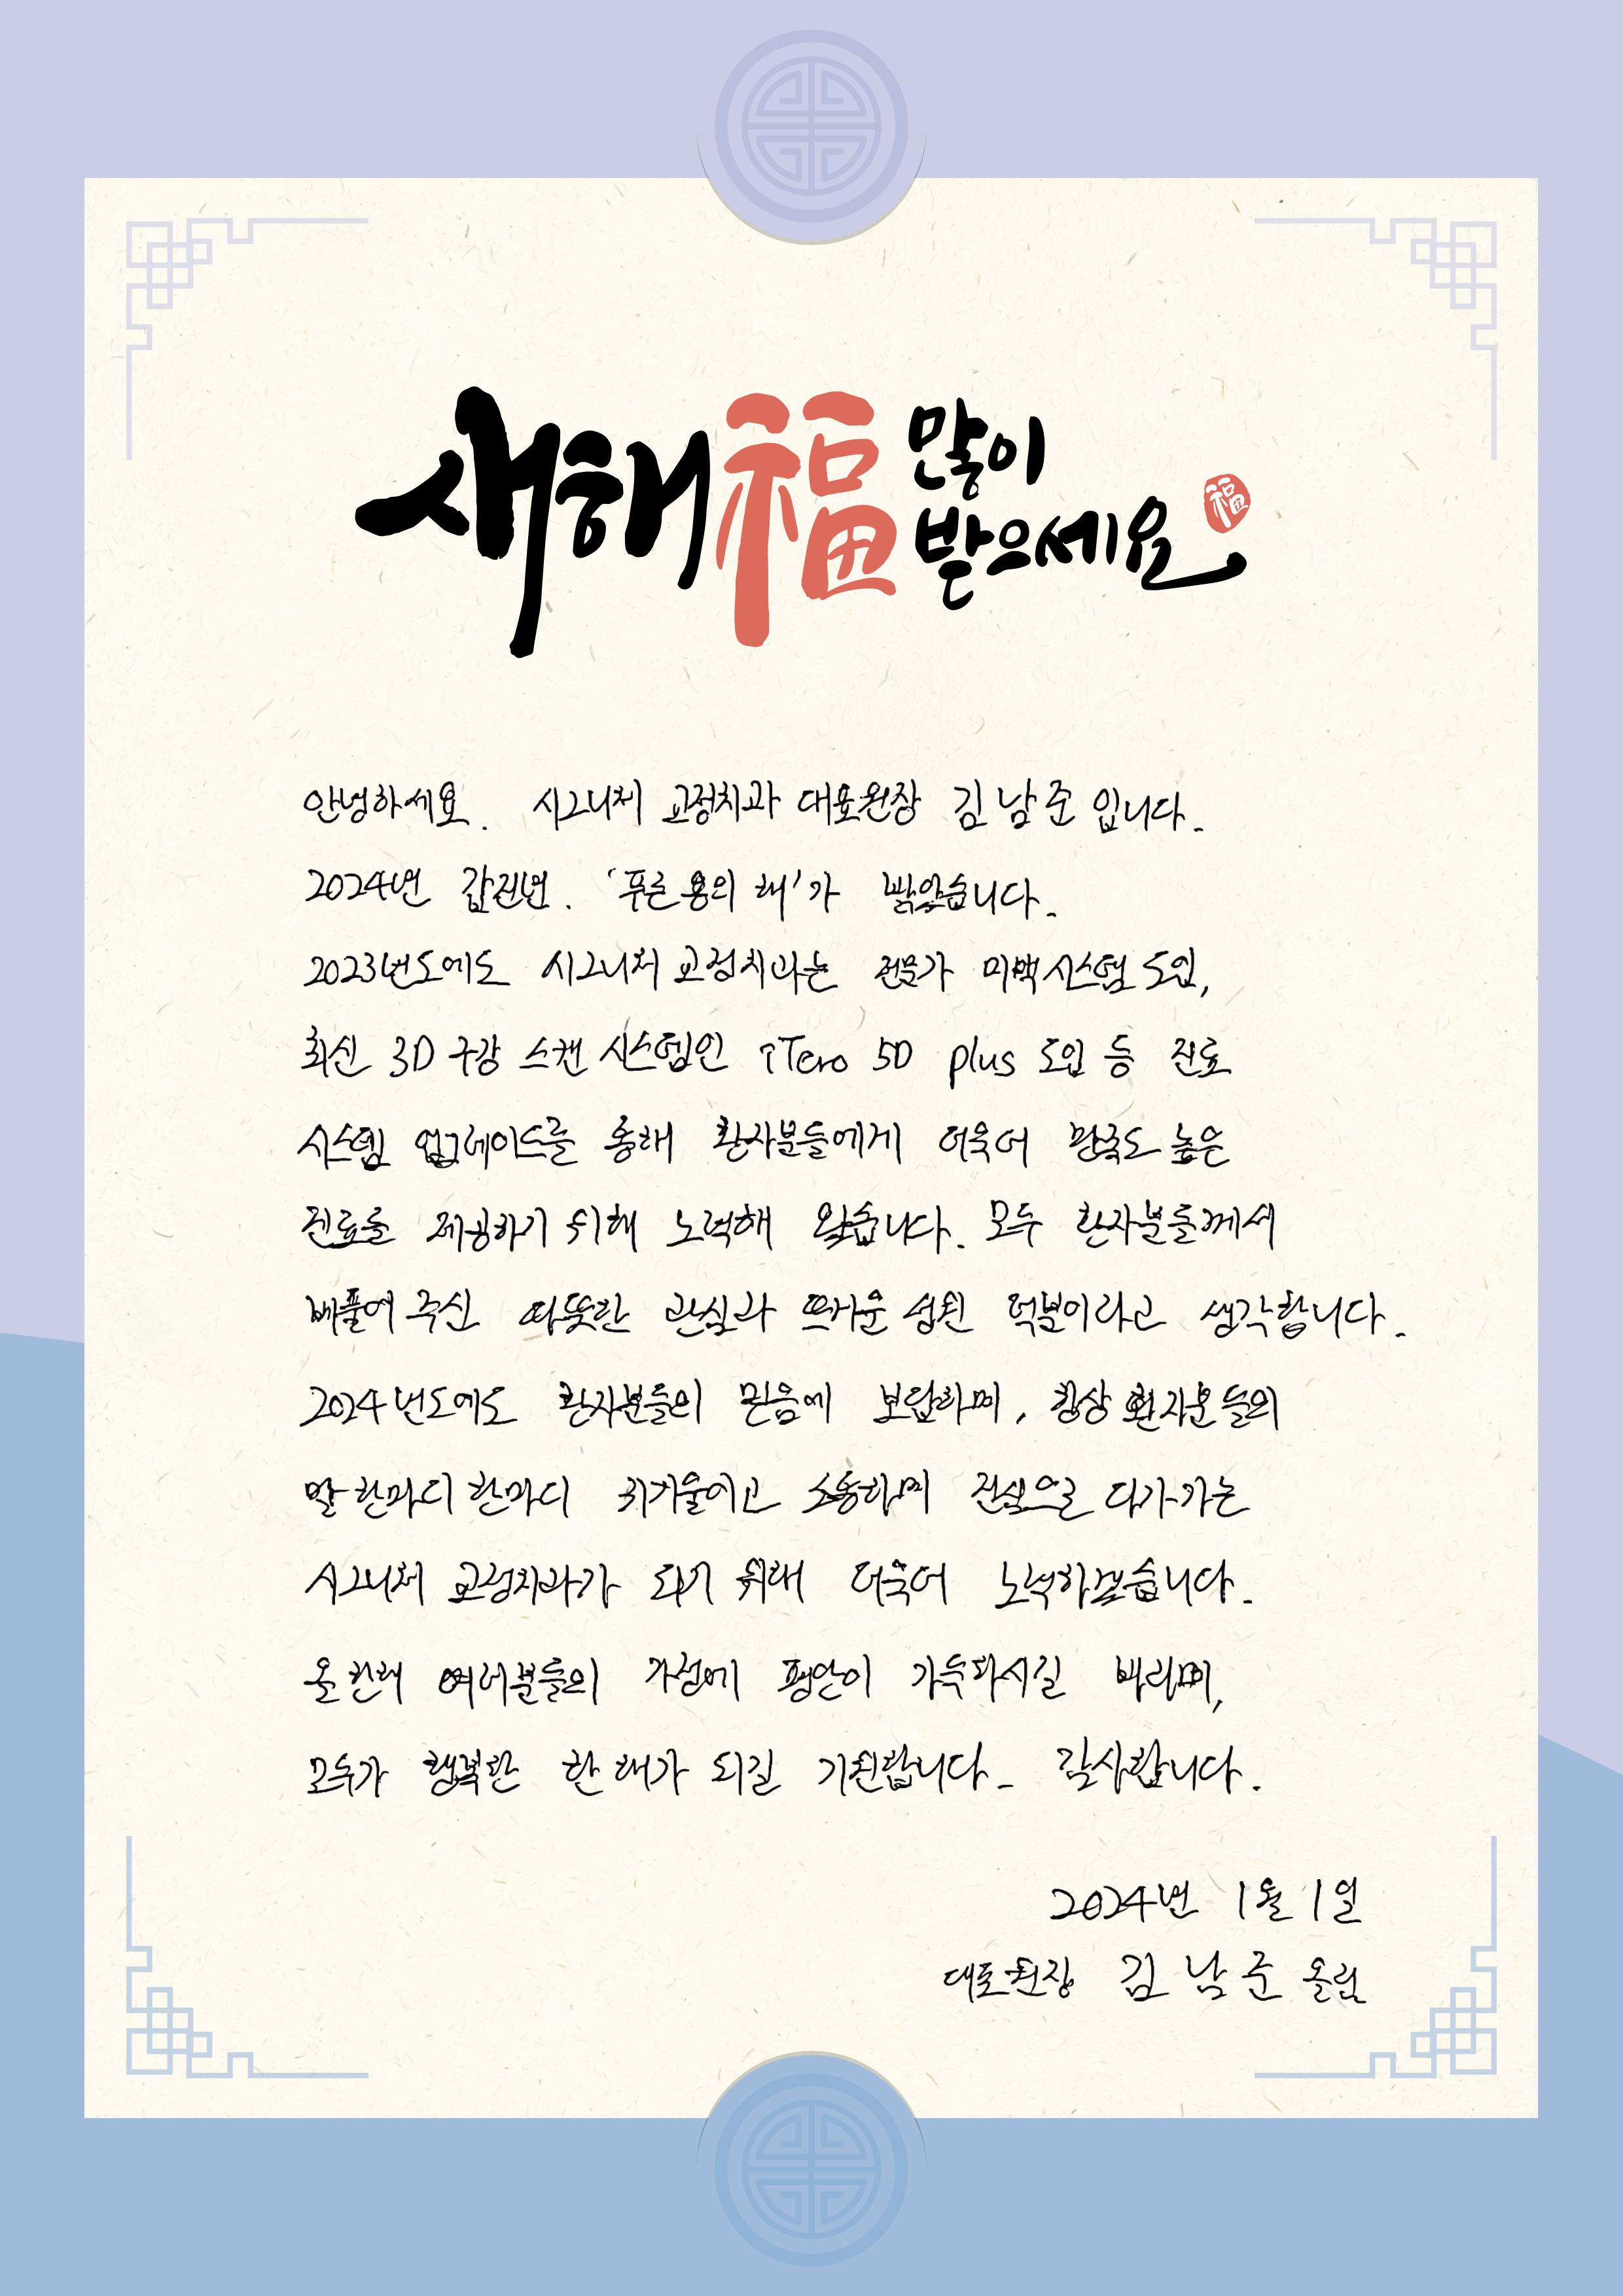 새해福 많이
받으세요
福
안녕하세요. 시그니처 교정치과 대표원장 김남준입니다.
2024년 갑진년. '푸른 용의 해'가 밝았습니다.
2023년도에도 시그니처 교정치과는 전문가 미백 시스템 도입,
최신 3D 구강 스캔 시스템인 iTero 5D plus 도입 등 진료
시스템 업그레이드를 통해 환자분들에게 더욱더 만족도 높은
진료를 제공하기 위해 노력해 왔습니다. 모두 환자분들께서
베풀어 주신 따뜻한 관심과 뜨거운 성원 덕분이라고 생각합니다.
2024년도에도 환자분들의 믿음에 보답하며, 항상 환자분들의
말 한마디 한마디 귀기울이고 소통하며 진심으로 다가가는
시그니처 교정치과가 되기 위해 더욱더 노력하겠습니다.
올 한해 여러분들의 가정에 평안이 가득하시길 바라며,
모두가 행복한 한 해가 되길 기원합니다. 감사합니다.
2024년 1월 1일
대표원장 김남준 올림